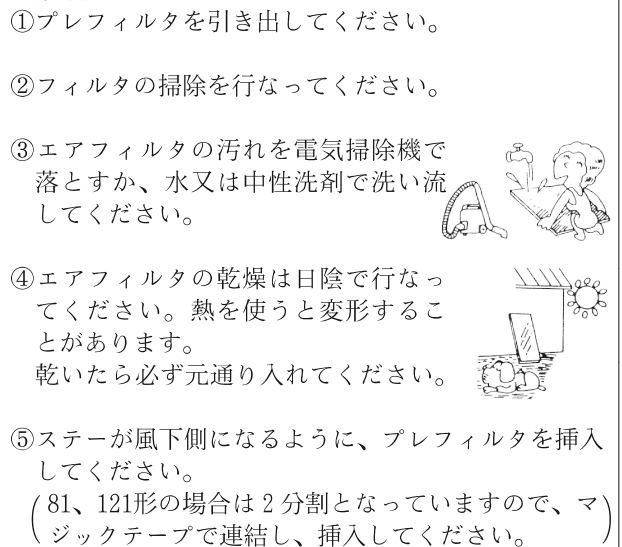 ①プレフィルタを引き出してください。
②フィルタの掃除を行なってください。
③エアフィルタの汚れを電気掃除機で
落とすか、水又は中性洗剤で洗い流
してください。
④エアフィルタの乾燥は日陰で行なっ
てください。熱を使うと変形するこ
とがあります。
乾いたら必ず元通り入れてください。
⑤ステーが風下側になるように、プレフィルタを挿入
してください。
(81、121形の場合は2分割となっていますので、マ
ジックテープで連結し、挿入してください。)